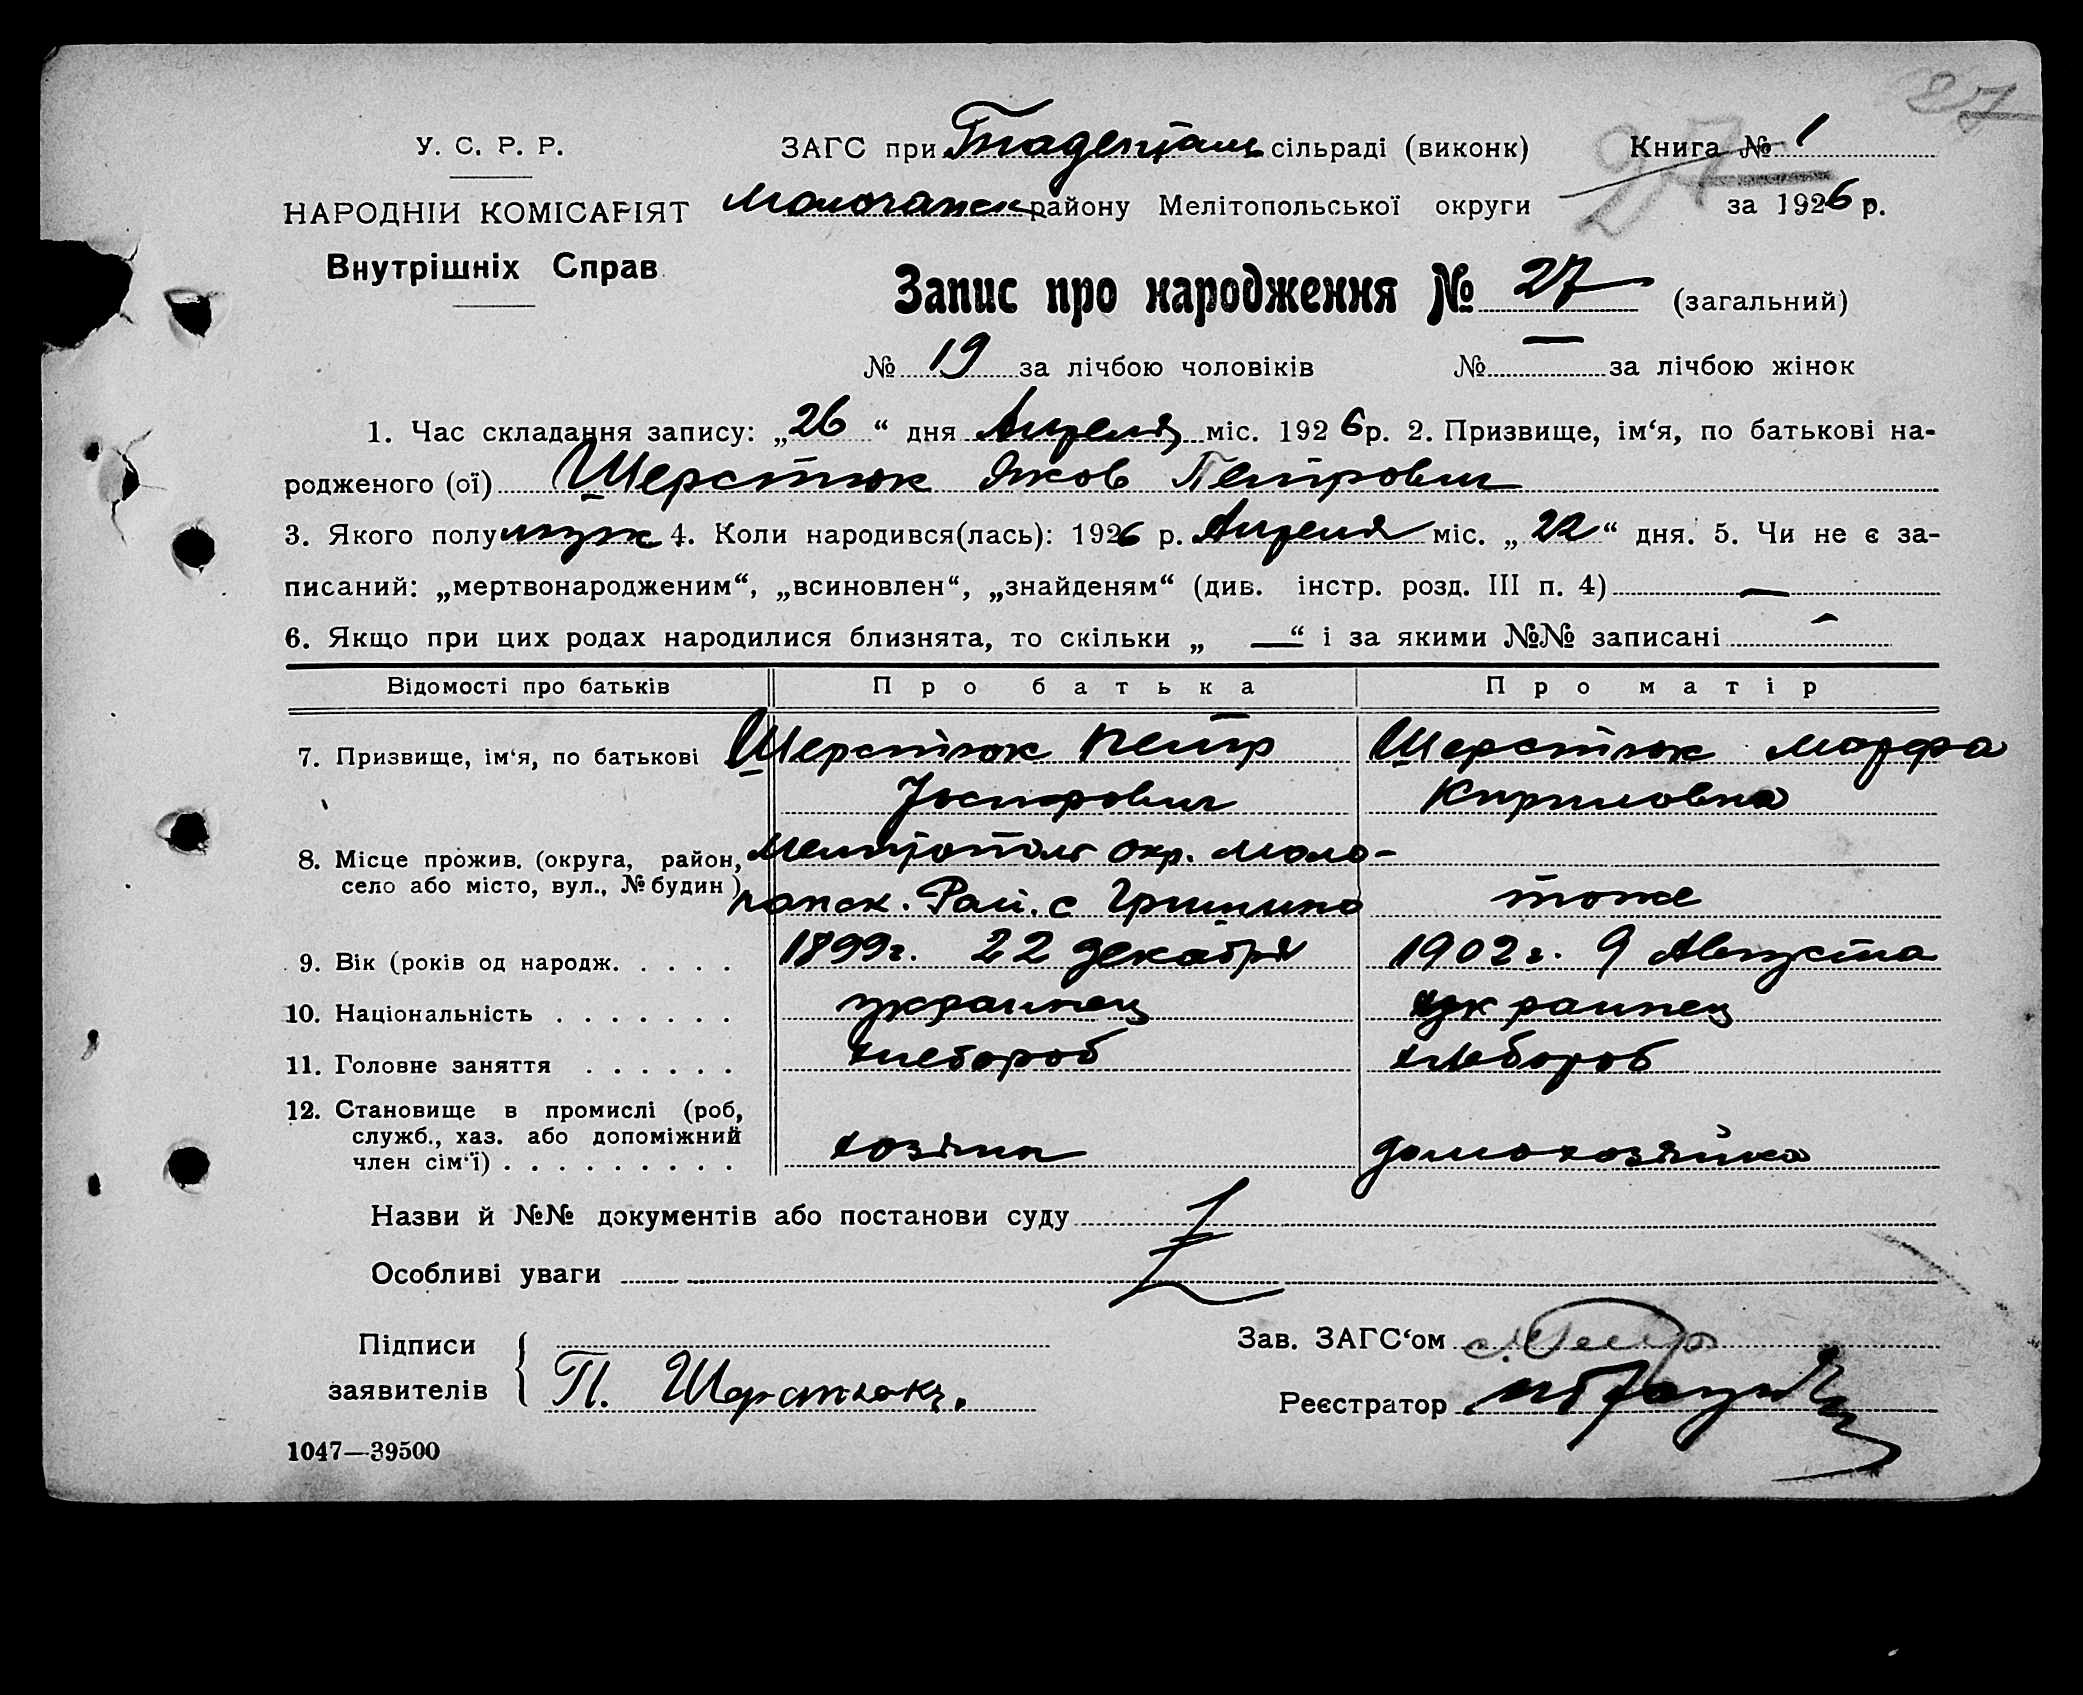 27
У. С. Р. Р.
ЗАГС при сільраді (виконк)
Книга № 1
27
НАРОДНІЙ КОМІСАРІЯТ
Молочанск району Мелітопольської округи
за 1926 р.
Внутрішніх Справ
Запис про народження № 27 (загальний)
№ 19 за лічбою чоловіків № — за лічбою жінок
1. Час складання запису: „26“ дня Апреля міс. 1926 р. 2. Призвище, ім‘я, по батькові на-
родженого (ої) Шерстюк Яков Петрович
3. Якого полу муж 4. Коли народився(лась): 1926 р. Апреля міс. „22“ дня. 5. Чи не є за-
писаний: „мертвонародженим“, „всиновлен“, „знайденям“ (див. інстр. розд. III п. 4) —
6. Якщо при цих родах народилися близнята, то скільки „ —“ і за якими №№ записані —
Відомості про батьків Про батька Про матір
7. Призвище, ім‘я, по батькові Шерстюк Петр Шерстюк Марфа
Кириловна
8. Місце прожив. (округа, район, Мелитополь окр. Моло-
село або місто, вул., № будин) чанск. Рай. с тоже
9. Вік (років од народж. . . . . 1899г. 22 декабря 1902г. 9 Августа
10. Національність . . . . . . . украинец украинец
11. Головне заняття . . . . . . хлебороб хлебороб
12. Становище в промислі (роб,
служб., хаз. або допоміжний
член сім‘ї) . . . . . . . . . хозяин домохозяйка
Назви й №№ документів або постанови суду
Особливі уваги
Підписи
Зав. ЗАГС‘ом
заявителів П. Шерстюк
Реєстратор
1047—39500